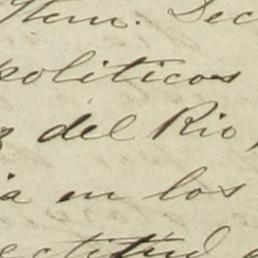 Item. Dec
politicos
z del Rio,
ia en los
ectitud